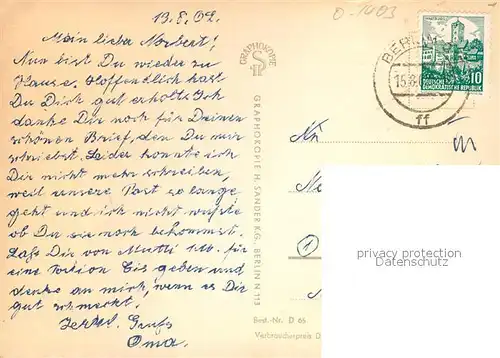 13.8.62.
O-1403
Mein lieber Norbert!
Nun bist Du wieder zu
Hause. Hoffentlich hast
Du Dich gut erholt. Ich
danke Dir noch für Deinen
schönen Brief, den Du mir
schriebst. Leider konnte ich
Dir nicht mehr schreiben,
weil unsere Post so lange
geht und ich nicht wußte
ob Du sie noch bekommst.
Laß Dir von Mutti 1 Mb. für
eine Portion Eis geben und
denke an mich, wenn es Dir
gut schmeckt.
Herzl. Gruß
Oma.
GRAPHOKOPIE
GRAPHOKOPIE H. SANDER KG., BERLIN N 113
Best.-Nr. D 65
Verbraucherpreis D
10
DEUTSCHE
DEMOKRATISCHE REPUBLIK
BER
15.8.
ff
privacy protection
Datenschutz